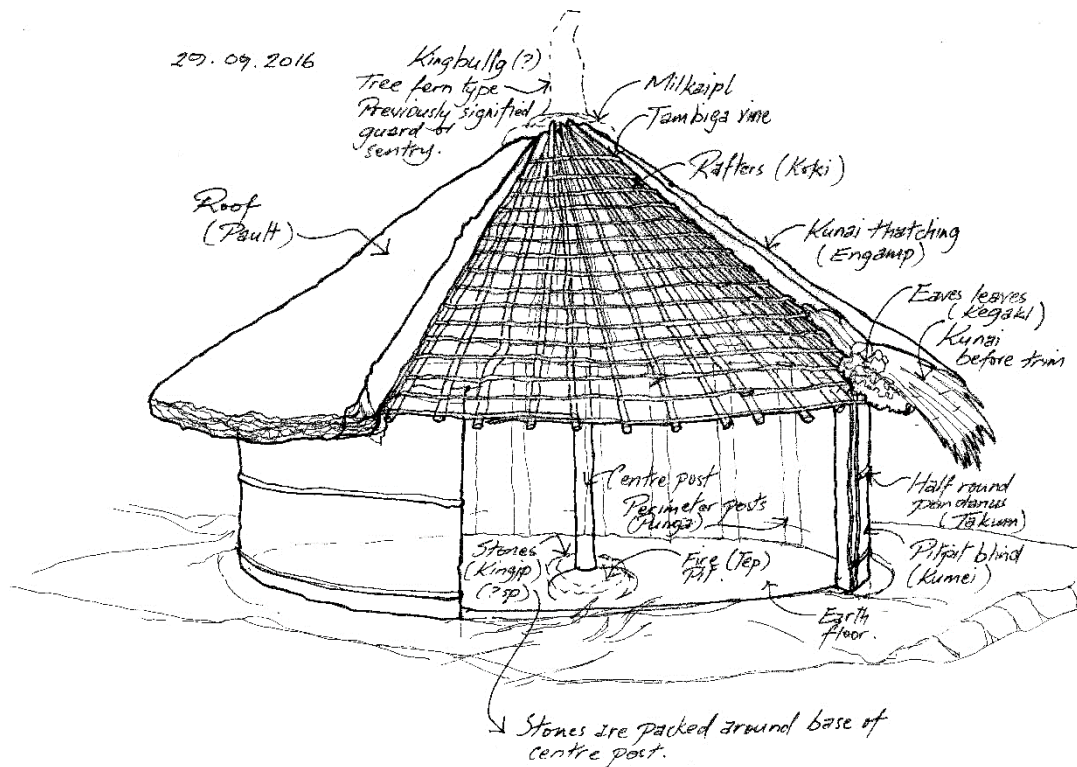 29.09.2016
Kingbullg (?)
Tree fern type
Previously signified
guard or
sentry.
Milkaipl
Tambiga vine
Rafters (Koki)
Roof
(Pault)
Kunai thatching
(Engamp)
Eaves leaves
(Kegakl)
Kunai
before trim
Centre post
Perimeter posts
(Punga)
Half round
pandanus
(Takum)
Stones
(Kingip)
(?sp)
Fire (Tep)
Pit.
Pitpit blind
(Kumei)
Earth
floor.
Stones are packed around base of
centre post.